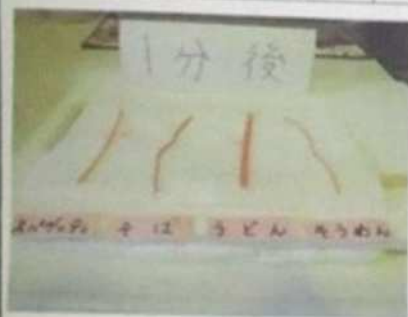 1分後
スパゲッティ そば うどん そうめん